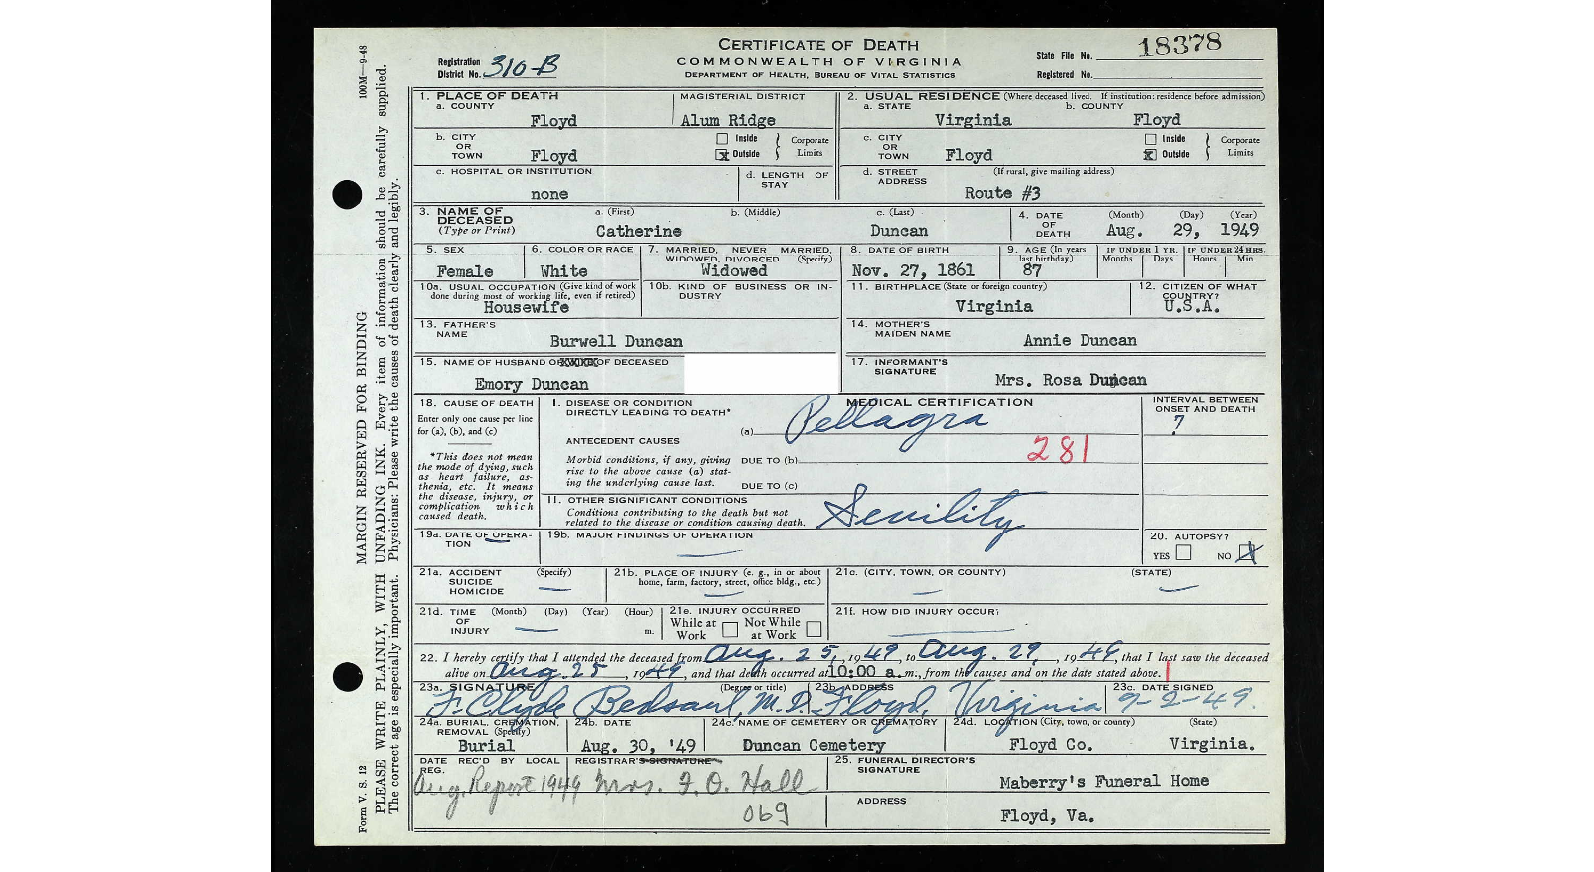 CERTIFICATE OF DEATH
COMMONWEALTH OF VIRGINIA
DEPARTMENT OF HEALTH, BUREAU OF VITAL STATISTICS
Registration District No. 310-B
State File No. 18378
Registered No.
100M—9-48
MARGIN RESERVED FOR BINDING
PLEASE WRITE PLAINLY, WITH UNFADING INK. Every item of information should be carefully supplied.
The correct age is especially important. Physicians: Please write the causes of death clearly and legibly.
Form V. S. 12
1. PLACE OF DEATH
a. COUNTY Floyd
MAGISTERIAL DISTRICT Alum Ridge
2. USUAL RESIDENCE (Where deceased lived. If institution: residence before admission)
a. STATE Virginia
b. COUNTY Floyd
b. CITY OR TOWN Floyd
Inside
Outside x
Corporate Limits
c. CITY OR TOWN Floyd
Inside
Outside x
Corporate Limits
c. HOSPITAL OR INSTITUTION none
d. LENGTH OF STAY
d. STREET ADDRESS (If rural, give mailing address) Route #3
3. NAME OF DECEASED (Type or Print)
a. (First) Catherine
b. (Middle)
c. (Last) Duncan
4. DATE OF DEATH (Month) (Day) (Year) Aug. 29, 1949
5. SEX Female
6. COLOR OR RACE White
7. MARRIED, NEVER MARRIED, WIDOWED, DIVORCED (Specify) Widowed
8. DATE OF BIRTH Nov. 27, 1861
9. AGE (In years last birthday) 87
IF UNDER 1 YR. Months Days
IF UNDER 24 HRS. Hours Min
10a. USUAL OCCUPATION (Give kind of work done during most of working life, even if retired) Housewife
10b. KIND OF BUSINESS OR INDUSTRY
11. BIRTHPLACE (State or foreign country) Virginia
12. CITIZEN OF WHAT COUNTRY? U.S.A.
13. FATHER'S NAME Burwell Duncan
14. MOTHER'S MAIDEN NAME Annie Duncan
15. NAME OF HUSBAND OF DECEASED Emory Duncan
17. INFORMANT'S SIGNATURE Mrs. Rosa Duncan
18. CAUSE OF DEATH
Enter only one cause per line for (a), (b), and (c)
*This does not mean the mode of dying, such as heart failure, asthenia, etc. It means the disease, injury, or complication which caused death.
MEDICAL CERTIFICATION
I. DISEASE OR CONDITION DIRECTLY LEADING TO DEATH* (a) Pellagra
INTERVAL BETWEEN ONSET AND DEATH ?
ANTECEDENT CAUSES
Morbid conditions, if any, giving rise to the above cause (a) stating the underlying cause last.
DUE TO (b)
281
DUE TO (c)
II. OTHER SIGNIFICANT CONDITIONS
Conditions contributing to the death but not related to the disease or condition causing death. Senility
19a. DATE OF OPERATION —
19b. MAJOR FINDINGS OF OPERATION —
20. AUTOPSY? YES NO X
21a. ACCIDENT SUICIDE HOMICIDE (Specify) —
21b. PLACE OF INJURY (e. g., in or about home, farm, factory, street, office bldg., etc.) —
21c. (CITY, TOWN, OR COUNTY) — (STATE) —
21d. TIME OF INJURY (Month) (Day) (Year) (Hour) — m.
21e. INJURY OCCURRED While at Work Not While at Work
21f. HOW DID INJURY OCCUR? —
22. I hereby certify that I attended the deceased from Aug. 25, 1949, to Aug. 29, 1949, that I last saw the deceased
alive on Aug. 25, 1949, and that death occurred at 10:00 a.m., from the causes and on the date stated above.
23a. SIGNATURE (Degree or title) F. Clyde Bedsaul, M.D.
23b. ADDRESS Floyd, Virginia
23c. DATE SIGNED 9-2-49.
24a. BURIAL, CREMATION, REMOVAL (Specify) Burial
24b. DATE Aug. 30, '49
24c. NAME OF CEMETERY OR CREMATORY Duncan Cemetery
24d. LOCATION (City, town, or county) (State) Floyd Co. Virginia.
DATE REC'D BY LOCAL REG. Aug. Report 1949
REGISTRAR'S SIGNATURE Mrs. F. O. Hall
069
25. FUNERAL DIRECTOR'S SIGNATURE Maberry's Funeral Home
ADDRESS Floyd, Va.